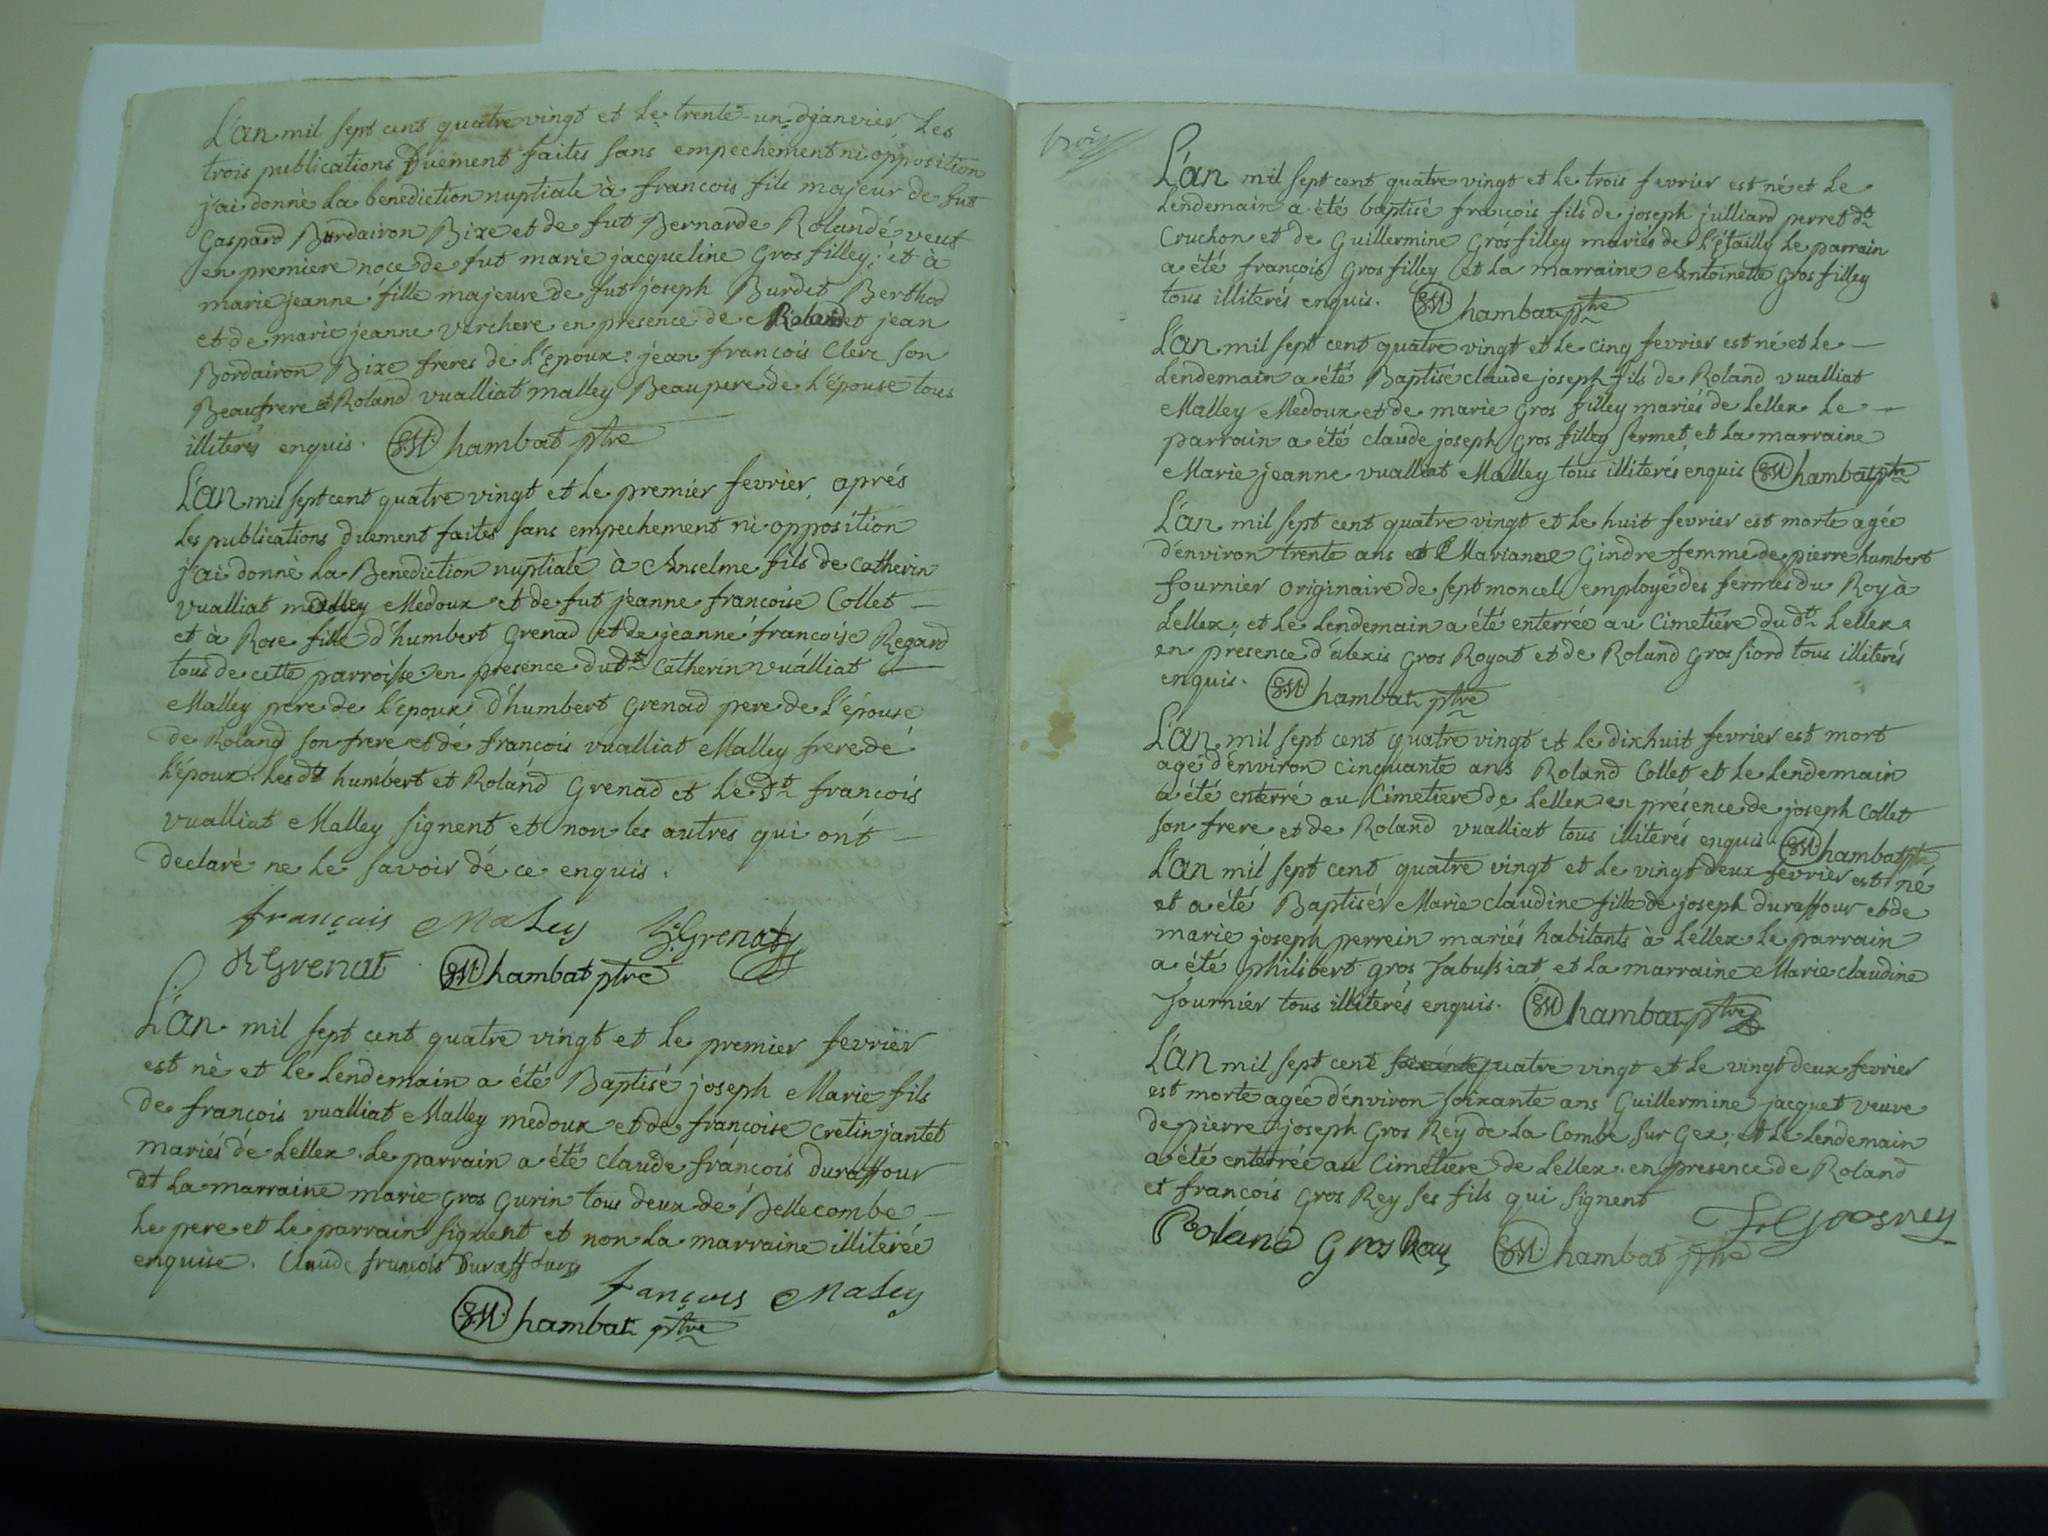 L'an mil sept cent quatre vingt et le trente-un djanvier, les
trois publications Duement faites sans empechement ni opposition
j'ai donnè la benediction nuptiale à francois fils majeur de fut
Gaspard Bordairon Bixe et de fut Bernarde Rolandé veuf
en premiere noce de fut marie jacqueline Gros filley; et à
marie jeanne fille majeure de fut joseph Burdet Berthod
et de marie jeanne verchere en presence de Roland et jean
Bordairon Bixe freres de l'époux: jean françois Clerc son
Beaufrere et Roland vualliat malley Beaupere de l'épouse tous
illiterés enquis. Chambat ptre
L'an mil sept cent quatre vingt et le premier fevrier, aprés
les publications duement faites sans empechement ni opposition
j'ai donnè la Benediction nuptiale à Anselme fils de Catherin
vualliat malley Medoux et de fut jeanne francoise Collet
et à Rose fille d'humbert Grenad et de jeanne francoise Regard
tous de cette parroisse en presence dudt Catherin vualliat
Malley pere de l'époux d'humbert Grenad pere de l'épouse
de Roland son frere et de françois vualliat Malley frere de
l'époux. les dt humbert et Roland Grenad et le dt françois
vualliat Malley signent et non les autres qui ont
declaré ne le savoir de ce enquis.
françois Maley Grenat
R Grenat Chambat ptre
L'an mil sept cent quatre vingt et le premier fevrier
est nè et le lendemain a été Baptisé joseph Marie fils
de françois vualliat Malley medoux et de françoise Cretin jantet
mariés de Lellex. le parrain a été claude françois duraffour
et la marraine marie Gros Gurin tous deux de Bellecombe
le pere et le parrain signent et non la marraine illiterée
enquise. Claude françois Duraffour
françois Maley
Chambat ptre
trois
L'an mil sept cent quatre vingt et le trois fevrier est né et le
lendemain a été baptisé françois fils de joseph julliard perret dt
Cruchon et de Guillermine Gros filley mariés de l'Etailly le parrain
a été françois Gros filley et la marraine Antoinette Gros filley
tous illiterés enquis. Chambat ptre
L'an mil sept cent quatre vingt et le cinq fevrier est né et le
lendemain a été Baptisé claude joseph fils de Roland vualliat
Malley Medoux et de marie Gros filley mariés de Lellex le
parrain a été claude joseph Gros filley sermet et la marraine
Marie jeanne vualliat Malley tous illiterés enquis Chambat ptre
L'an mil sept cent quatre vingt et le huit fevrier est morte agée
d'environ trente ans Marianne Gindre femme de pierre humbert
fournier originaire de septmoncel employé des fermes du Roy à
Lellex; et le lendemain a été enterrée au Cimetiere du dt Lellex
en presence d'alexis Gros Royat et de Roland Gros fiord tous illiterés
enquis. Chambat ptre
L'an mil sept cent quatre vingt et le dixhuit fevrier est mort
agé d'environ cinquante ans Roland Collet et le lendemain
a été enterré au Cimetiere de Lellex en présence de joseph Collet
son frere et de Roland vualliat tous illiterés enquis. Chambat ptre
L'an mil sept cent quatre vingt et le vingt deux fevrier est né
et a été Baptisér Marie claudine fille de joseph duraffour et de
marie joseph perrein mariés habitants à Lellex le parrain
a été philibert gros jabussiat et la marraine Marie claudine
fournier tous illiterés enquis. Chambat ptre
L'an mil sept cent soixante quatre vingt et le vingt deux fevrier
est morte agée d'environ soixante ans Guillermine jacquet veuve
de pierre joseph Gros Rey de la Combe sur Gex; et le lendemain
a été enterrée au Cimetiere de Lellex en presence de Roland
et françois Gros Rey ses fils qui signent
Roland Gros Ray Chambat ptre Fr Grosrey